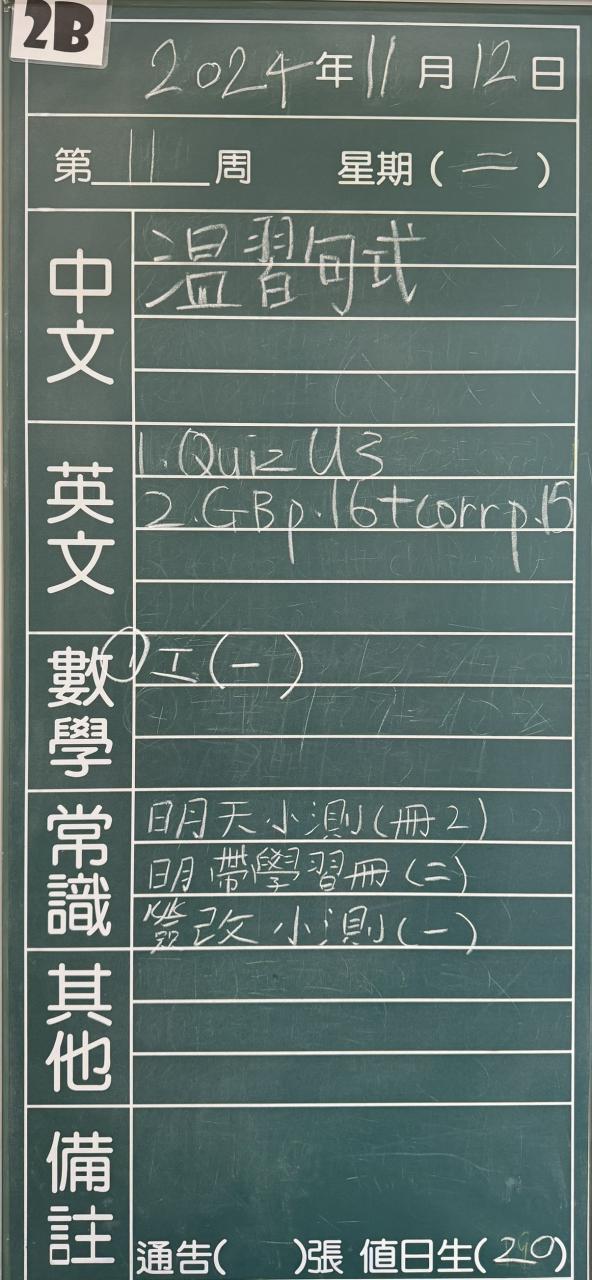 2B
2024年11月12日
第11周 星期(二)
中文
溫習句式
英文
1.Quiz U3
2.GBp.16+corrp.15
數學
①工(一)
常識
明天小測(冊2)
明帶學習冊(二)
簽改小測(一)
其他
備註
通告( )張 值日生(20)